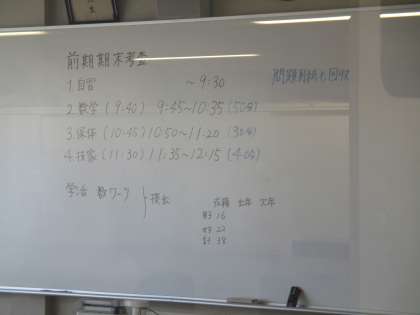 前期期末考査
1.自習 ～9:30
問題用紙も回収
2.数学(9:40) 9:45～10:35(50分)
3.保体(10:45)10:50～11:20(30分)
4.技家(11:30)11:35～12:15(40分)
学活 数ワーク 提出
在籍 出席 欠席
男子 16
女子 22
計 38